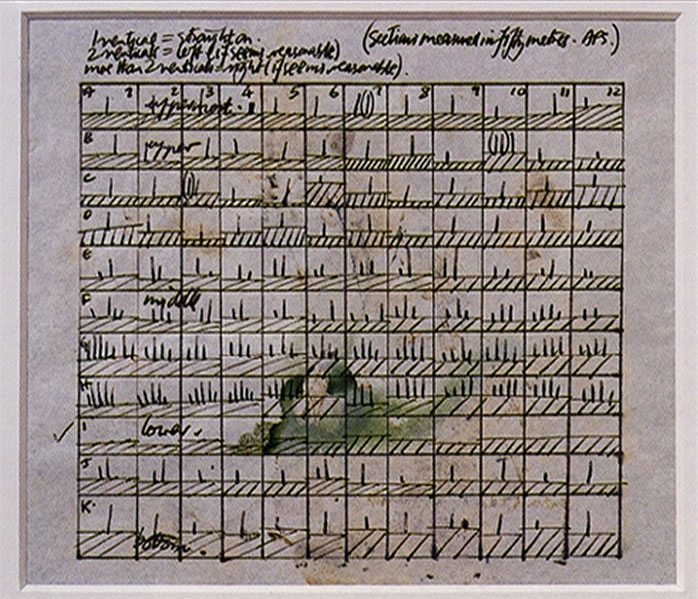 1 vertical = straight on.
(Sections measured in fifty metres. APS.)
2 verticals = left (if seems reasonable)
more than 2 verticals = right (if seems reasonable).
A 1 2 3 4 5 6 7 8 9 10 11 12
uppermost.
B
upper
C
D
E
F
middle
G
H
I
lower.
J
K
bottom.